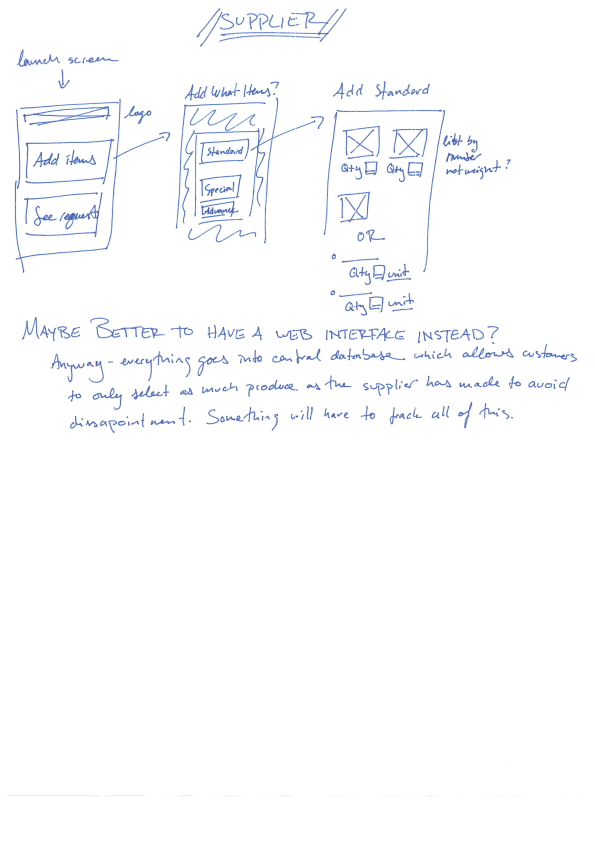 //SUPPLIER//
launch screen
logo
Add items
See request
Add What Items?
Standard
Special
Advance
Add Standard
Qty Qty
list by
number
not weight?
OR
Qty unit
Qty unit
MAYBE BETTER TO HAVE A WEB INTERFACE INSTEAD?
Anyway - everything goes into central database which allows customers
to only select as much produce as the supplier has made to avoid
dissapointment. Something will have to track all of this.